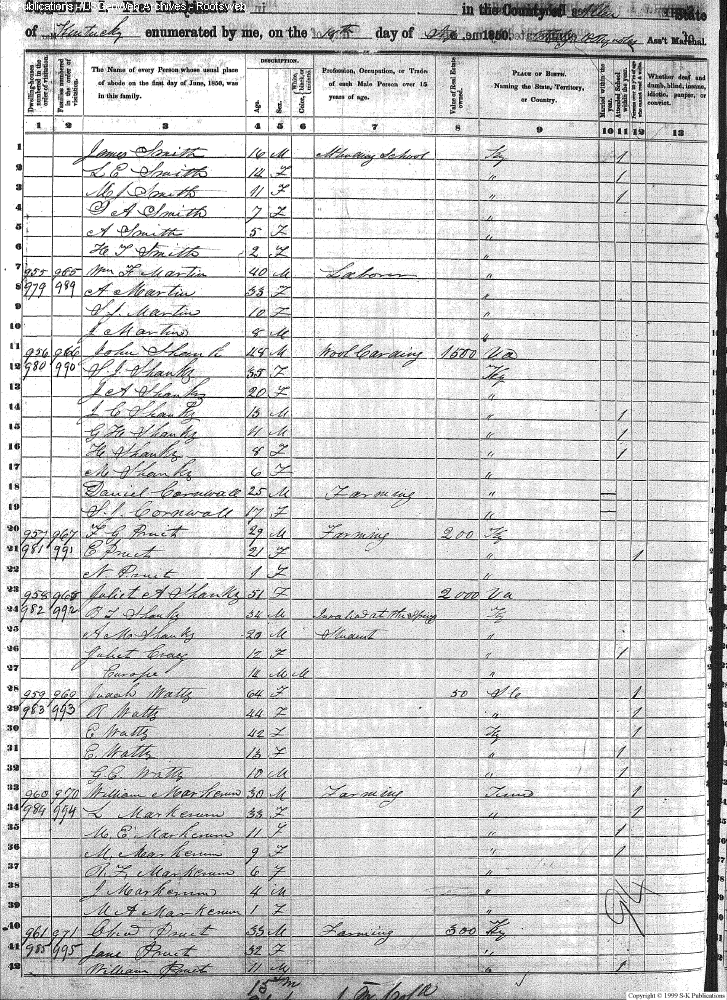 S-K Publications / USGenWeb Archives - Rootsweb
in the County of Allen State
of Kentucky enumerated by me, on the 19th day of 1850. Ass't Marshal.
Dwelling-houses numbered in the order of visitation.
Families numbered in the order of visitation.
The Name of every Person whose usual place of abode on the first day of June, 1850, was in this family.
DESCRIPTION.
Age.
Sex.
White, Color, black, or mulatto.
Profession, Occupation, or Trade of each Male Person over 15 years of age.
Value of Real Estate owned.
PLACE OF BIRTH. Naming the State, Territory, or Country.
Married within the year.
Attended School within the year.
Whether deaf and dumb, blind, insane, idiotic, pauper, or convict.
1 2 3 4 5 6 7 8 9 10 11 12 13
1 James Smith 16 M Attending School Ky 1
2 L E Smith 14 F " 1
3 M J Smith 11 F " 1
4 S A Smith 7 F "
5 A Smith 5 F "
6 H T Smith 2 F "
7 955 985 Wm H Martin 40 M Laborer "
8 979 989 A Martin 33 F "
9 S J Martin 10 F "
10 J Martin 8 M "
11 956 966 John Shanks 48 M Wool Carding 1500 Va
12 980 990 S J Shanks 35 F Ky
13 J A Shanks 20 F "
14 J C Shanks 13 M " 1
15 G H Shanks 11 M " 1
16 H Shanks 8 F " 1
17 M Shanks 6 F "
18 Daniel Cornwall 25 M Farming "
19 S J Cornwall 17 F "
20 957 967 F G Pruet 29 M Farming 200 Ky
21 981 991 E Pruet 21 F " 1
22 N Pruet 1 F "
23 958 968 Juliet A Shanks 51 F 2000 Va
24 982 992 B T Shanks 34 M Invalid at the Springs Ky
25 A M Shanks 20 M Student "
26 Juliet Craig 12 F " 1
27 Europe 14 M M "
28 959 969 Judah Watts 64 F 50 S C 1
29 983 993 R Watts 44 F " 1
30 E Watts 42 F Ky 1
31 E Watts 13 F " 1
32 G C Watts 10 M " 1
33 960 970 William Markerum 30 M Farming Tenn 1
34 984 994 L Markerum 33 F " 1
35 M E Markerum 11 F " 1
36 M Markerum 9 F " 1
37 R F Markerum 6 F "
38 J Markerum 4 M "
39 M A Markerum 1 F "
40 961 971 Obed Pruet 33 M Farming 300 Ky
41 985 995 Jane Pruet 32 F "
42 William Pruet 11 M " 1
94
Copyright © 1999 S-K Publications